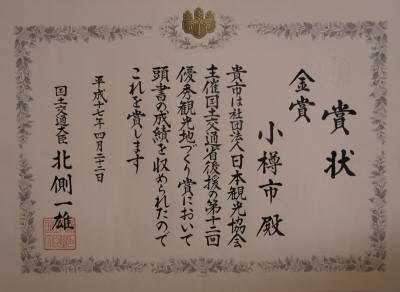 賞状
金賞
小樽市殿
貴市は社団法人日本観光協会
主催国土交通省後援の第十二回
優秀観光地づくり賞において
頭書の成績を収められたので
これを賞します
平成十七年四月二十二日
国土交通大臣 北側一雄